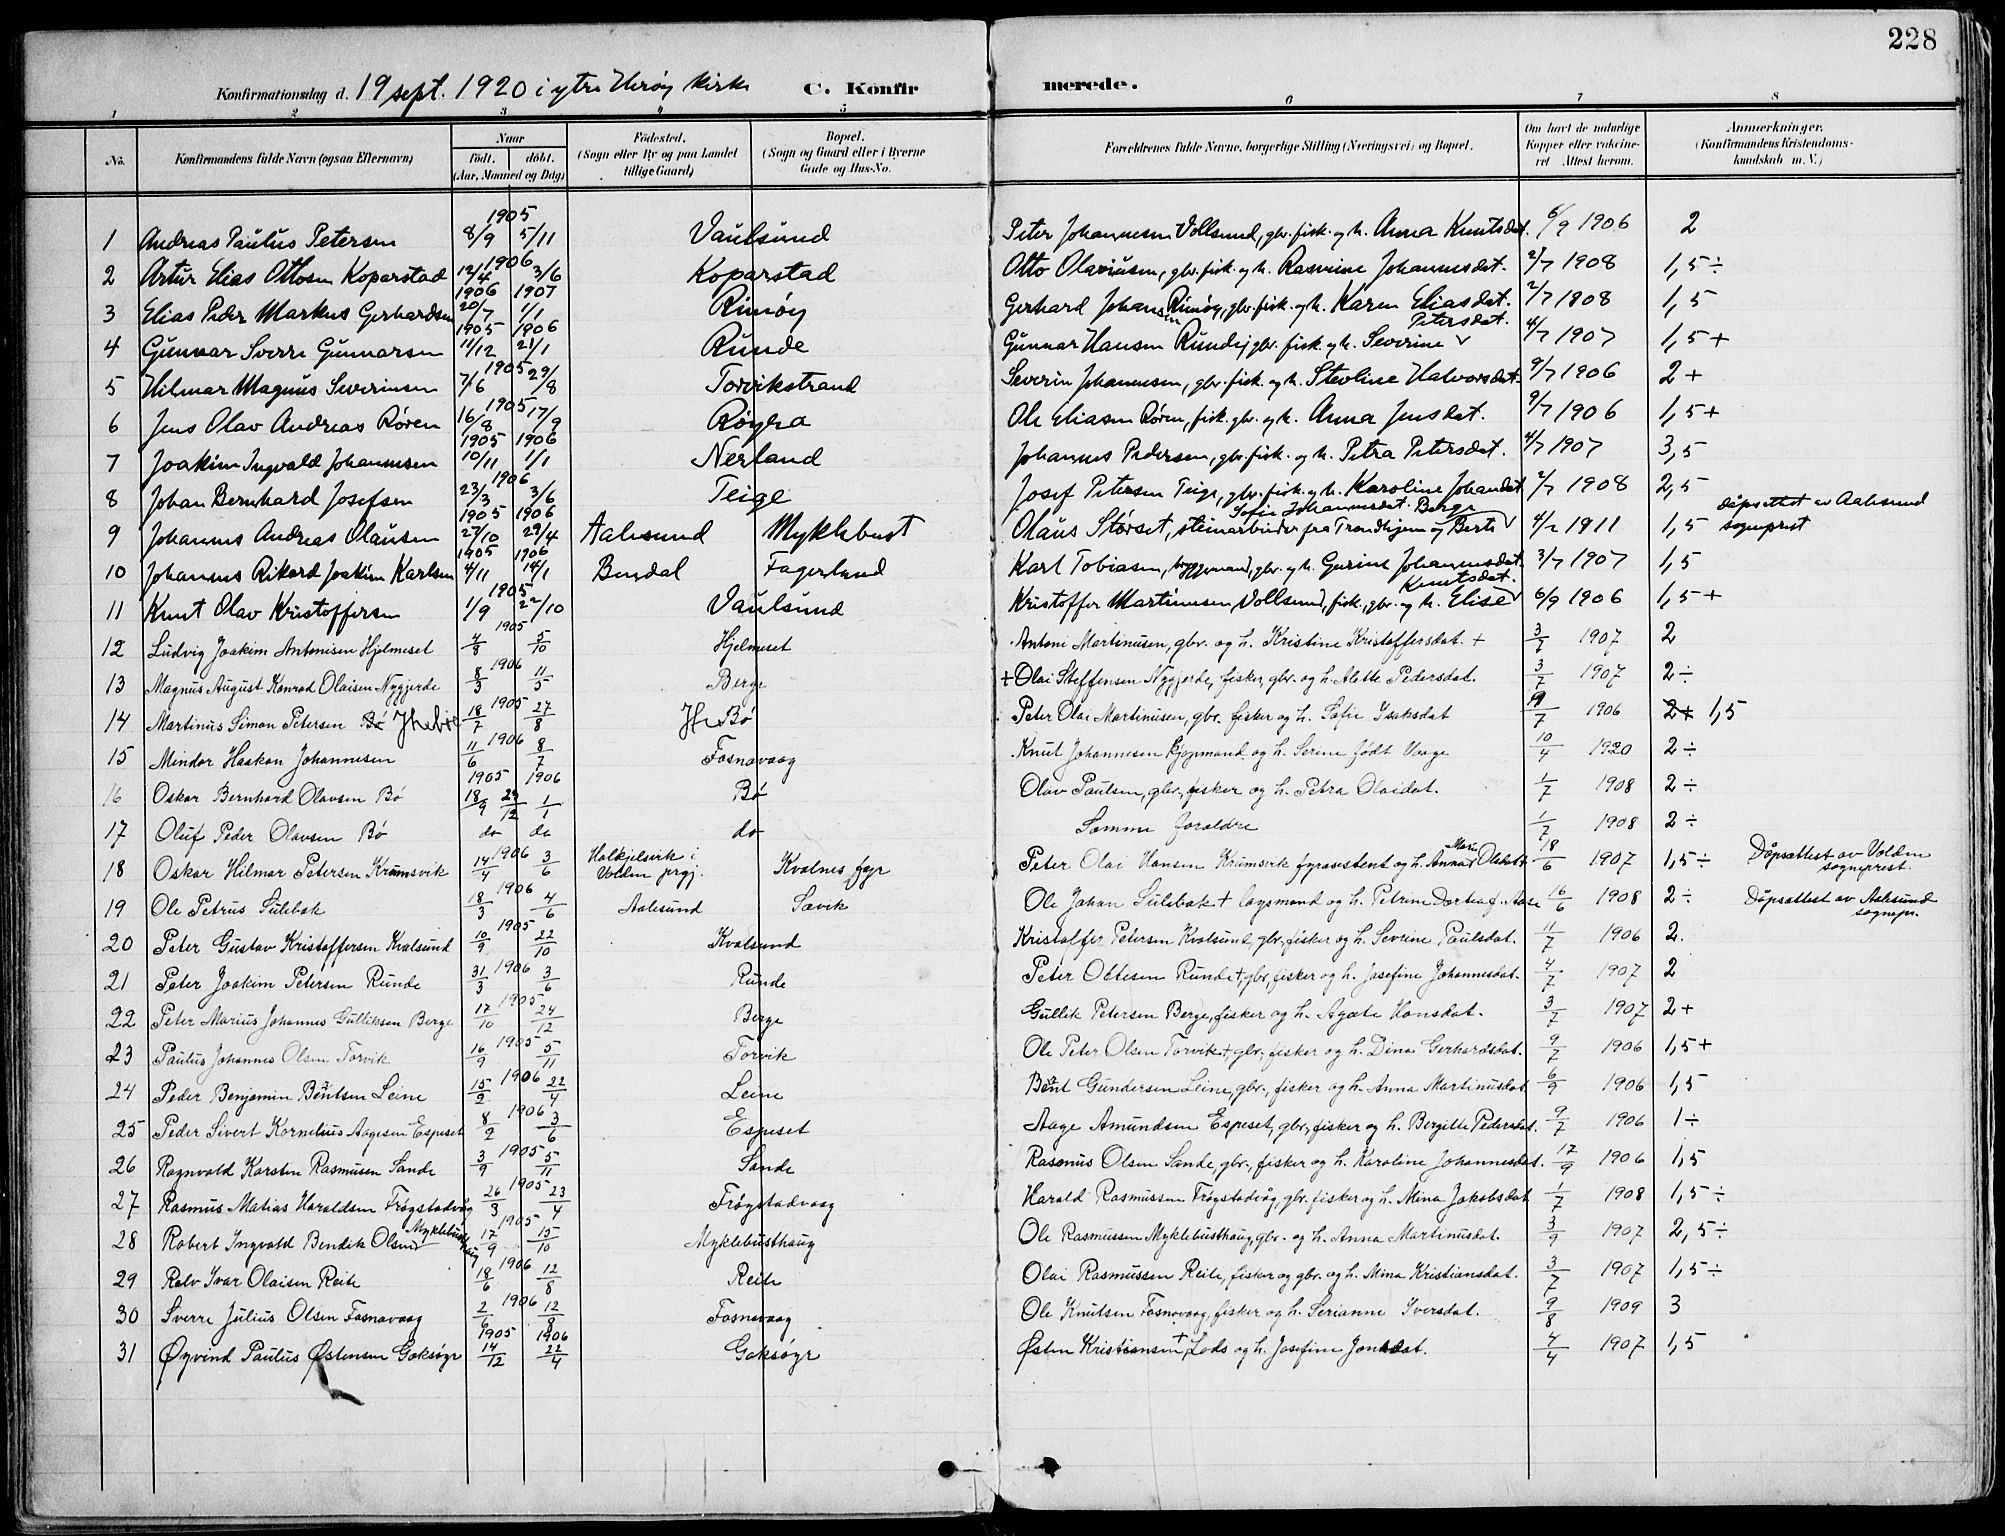 228
Konfirmationsdag d. 19 sept. 1920 i ytre Herøy kirke C. Konfirmerede.
1 2 3 4 5 6 7 8
No. Konfirmandens fulde Navn (ogsaa Efternavn) Naar født. døbt. (Aar, Maaned og Dag) Fødested. (Sogn eller By og paa Landet tillige Gaard) Bopæl. (Sogn og Gaard eller i Byerne Gade og Hus-No. Forældrenes fulde Navne, borgerlige Stilling (Næringsvei) og Bopæl. Om havt de naturlige Kopper eller vakcineret Attest herom. Anmærkninger. (Konfirmandens Kristendomskundskab m. V.)
1 Andreas Paulus Petersen 1905 8/9 5/11 Vaulsund Peter Johannesen Vollsund, gbr. fisk. og h. Anna Knutsdat. 6/9 1906 2
2 Artur Elias Ottosen Koparstad 1906 12/4 3/6 Koparstad Otto Olaviusen, gbr. fisk. og h. Rasmine Johannesdat. 2/7 1908 1,5 ÷
3 Elias Peder Markus Gerhardsen 1906 1907 20/7 1/1 Rimøy Gerhard Johansen Rimøy, gbr. fisk. og h. Karen Eliasdat. 2/7 1808 1,5
4 Gunnar Sverre Gunnarsen 1905 1906 11/12 21/1 Runde Gunnar Hansen Runde, gbr. fisk. og h. Severine Petersdat. 4/7 1907 1,5 +
5 Hilmar Magnus Severinsen 1905 7/6 29/8 Torvikstrand Severin Johannesen, gbr. fisk. og h. Stevline Halvorsdat. 9/7 1906 2 +
6 Jens Olav Andreas Røren 1905 16/8 17/9 Røyra Ole Eliasen Røren, fisk. gbr. og h. Anna Jensdat. 9/7 1906 1,5 +
7 Joakim Ingvald Johannesen 1905 1906 10/11 1/1 Nerland Johannes Pedersen, gbr. fisk. og h. Petra Petersdat. 4/7 1907 3,5
8 Johan Bernhard Josefsen 1906 23/3 3/6 Teige Josef Petersen Teige, gbr. fisk. og h. Karoline Johansdat 2/7 1908 2,5
9 Johannes Andreas Olausen 1905 1906 27/10 29/4 Aalesund Myklebust Olaus Størset, steinarbeider fra Trondhjem og Berte Sofie Johannesdat. Berge 4/2 1911 1,5 dåpsattest av Aalesund sogneprest
10 Johannes Rikard Joakim Karlsen 1905 1906 4/11 14/1 Bendal Fagerland Karl Tobiasen, byggmand, gbr. og h. Gurine Johannesdat. 3/7 1907 1,5
11 Knut Olav Kristoffersen 1905 1/9 22/10 Vaulsund Kristoffer Martinusen Vollsund, fisk., gbr. og h. Elise Knutsdat. 6/9 1906 1,5 +
12 Ludvig Joakim Antonisen Hjelmeset 1905 4/8 5/10 Hjelmeset Antoni Martinusen, gbr. og h. Kristine Kristoffersdat. + 3/7 1907 2
13 Magnus August Konrad Olaisen Nygjerde 1906 8/3 11/5 Berge + Olai Steffensen Nygjerde, fisker, gbr. og h. Alette Pedersdat. 3/7 1907 2 ÷
14 Martinus Simon Petersen Bø 1905 18/7 27/8 Bø Peter Olai Martinusen, gbr. fisker og h. Sofie Isaksdat 9/7 1906 2+ 1,5
15 Mindor Haakon Johannesen 1906 11/6 8/7 Fosnavaag Knut Johannesen kjøpmand og h. Serine født Vaage 10/4 1920 2 ÷
16 Oskar Bernhard Olavsen Bø 1905 1906 18/9 24/12 1/1 Bø Olav Paulsen, gbr., fisker og h. Petra Olaidat. 1/7 1908 2 ÷
17 Oluf Peder Olavsen Bø do do do Samme foraldre 1/7 1908 2 ÷
18 Oskar Hilmar Petersen Krumsvik 1906 14/4 3/6 Halkjelsvik i Volden prgj. Kvalnes fyr Peter Olai Hansen Krumsvik fyrassistent og h. Anna Marie Olsdat 18/6 1907 1,5 ÷ Dåpsattest av Volden sogneprest.
19 Ole Petrus Sulebak 1906 18/3 4/6 Aalesund Sævik Ole Johan Sulebak + lagsmand og h. Petrine Dortea f. Aase 16/6 1908 2 ÷ Dåpsattest av Aalesund sognepr.
20 Peter Gustav Kristoffersen Kvalsund 1905 10/9 22/10 Kvalsund Kristoffer Petersen Kvalsund, gbr., fisker og h. Sevrine Paulsdat. 11/7 1906 2.
21 Peter Joakim Petersen Runde 1906 31/3 3/6 Runde Peter Ottesen Runde + gbr, fisker og h. Josefine Johannesdat. 4/7 1907 2
22 Peter Marius Johannes Gulliksen Berge 1905 17/10 24/12 Berge Gullik Petersen Berge, fisker og h. Agate Hansdat. 3/7 1907 2 +
23 Paulus Johannes Olsen Torvik 1905 16/9 5/11 Torvik Ole Peter Olsen Torvik + gbr., fisker og h. Dina Gerhardsdat. 9/7 1906 1,5 +
24 Peder Benjamin Bentsen Leine 1906 15/2 22/4 Leine Bent Gundersen Leine, gbr., fisker og h. Anna Martinusdat 6/9 1906 1,5
25 Peder Sivert Kornelius Aagesen Espeset 1906 8/2 3/6 Espeset Aage Amundsen Espeset, gbr., fisker og h. Bergitte Pedersdat. 9/7 1906 1 ÷
26 Ragnvald Karsten Rasmusen Sande 1905 3/9 5/11 Sande Rasmus Olsen Sande, gbr., fisker og h. Karoline Johannesdat. 17/9 1906 1,5
27 Rasmus Matias Haraldsen Frøystadvåg 1905 26/3 23/4 Frøystadvaag Harald Rasmussen Frøystadvåg, gbr. fisker og h. Mina Jakobsdat 1/7 1908 1,5 ÷
28 Robert Ingvald Bendik Olsen Myklebusthaug 1905 17/9 15/10 Myklebusthaug Ole Rasmussen Myklebusthaug, gbr. og h. Anna Martinusdat. 3/9 1907 2,5 ÷
29 Rolv Ivar Olaisen Reite 1906 18/6 12/8 Reite Olai Rasmussen Reite, fisker og gbr. og h. Mina Kristiansdat. 3/7 1907 1,5 ÷
30 Sverre Julius Olsen Fosnavaag 1906 2/6 12/8 Fosnavaag Ole Knutsen Fosnavaag, fisker og h. Serianne Iversdat. 9/8 1909 3
31 Øyvind Paulus Østensen Goksøyr 1905 1906 14/12 22/4 Goksøyr Østen Kristiansen + Lods og h. Josefine Jonsdat. 4/4 1907 1,5